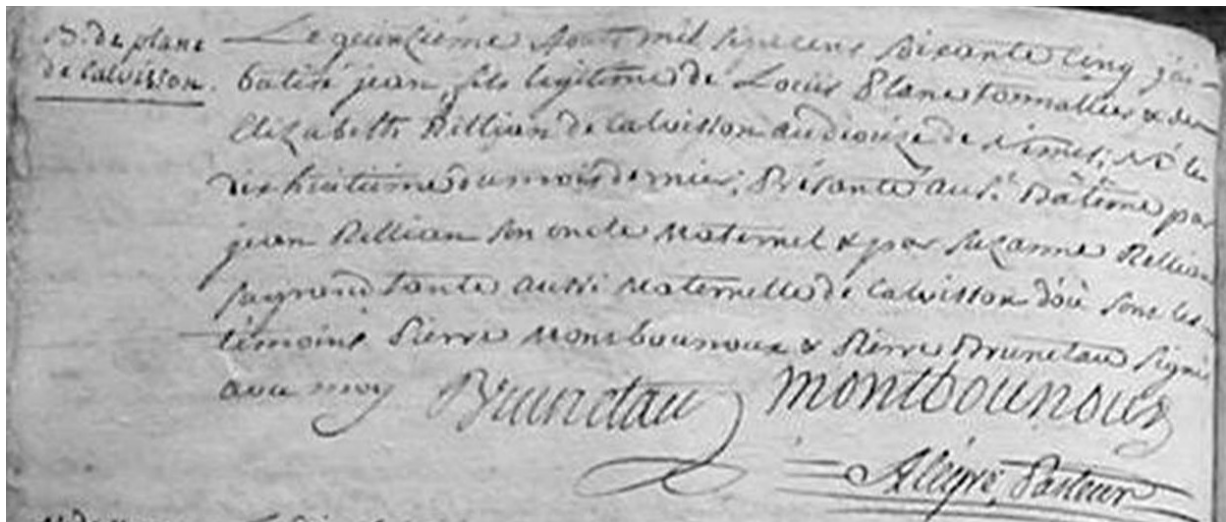 B. de plane
de Calvisson.
Le quinzième Aout mil sept cens soixante cinq j'ai
batisé jean, fils legitime de Louis Plane tonnallier & de
Elizabeth Rellian de Calvisson au dioceze de Nimes; né le
dix huitieme du mois dernier; Présanté au St. Batême par
jean Rellian son oncle maternel & par Suzanne Rellian
sa grand tante aussi maternelle de Calvisson d'où sont les
témoins Pierre Monbounoux & Pierre Brunetau signés
avec moy Brunetau Montbounoux
Alègre, Pasteur